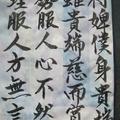 待婢僕身貴端
雖貴端慈而寬
勢服人心不然
理服人方無言